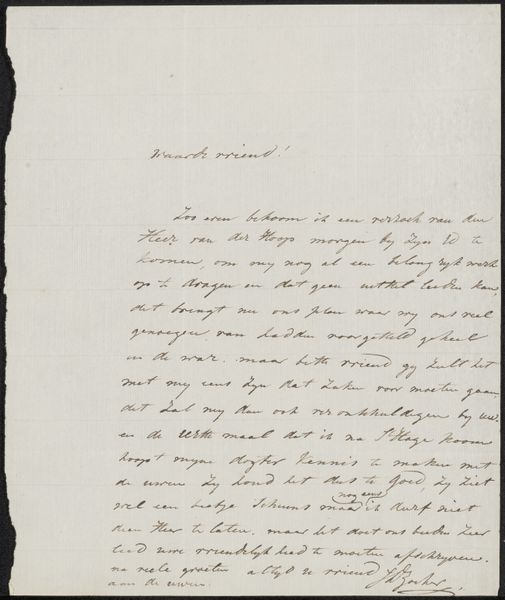 Waarde vriend!
Zoo even bekoom ik een verzoek van den
Heer van der Hoop morgen by Zyn Ed te
komen, om my nog al een belangryk werk
op te dragen en dat geen uitstel leiden kan,
dit brengt nu ons plan waar wy ons veel
genoegen van hadden voorgesteld geheel
in de war. maar beste vriend gy zult het
met my eens zyn dat zaken voor moeten gaan,
dit zal my dan ook verontschuldigen by uw.
en de maal dat ik na S'Hage koom
hoopt myne dogter kennis te maken met
de uwen Zy vond het dus te goed, Zy ziet
wel een beetje maar nog eens ik durf niet
den Heer te laten. maar het doet ons beiden zeer
leed uwe vriendelykheid te moeten afschryven.
na vele groeten altyd uw vriend
aan de uwen